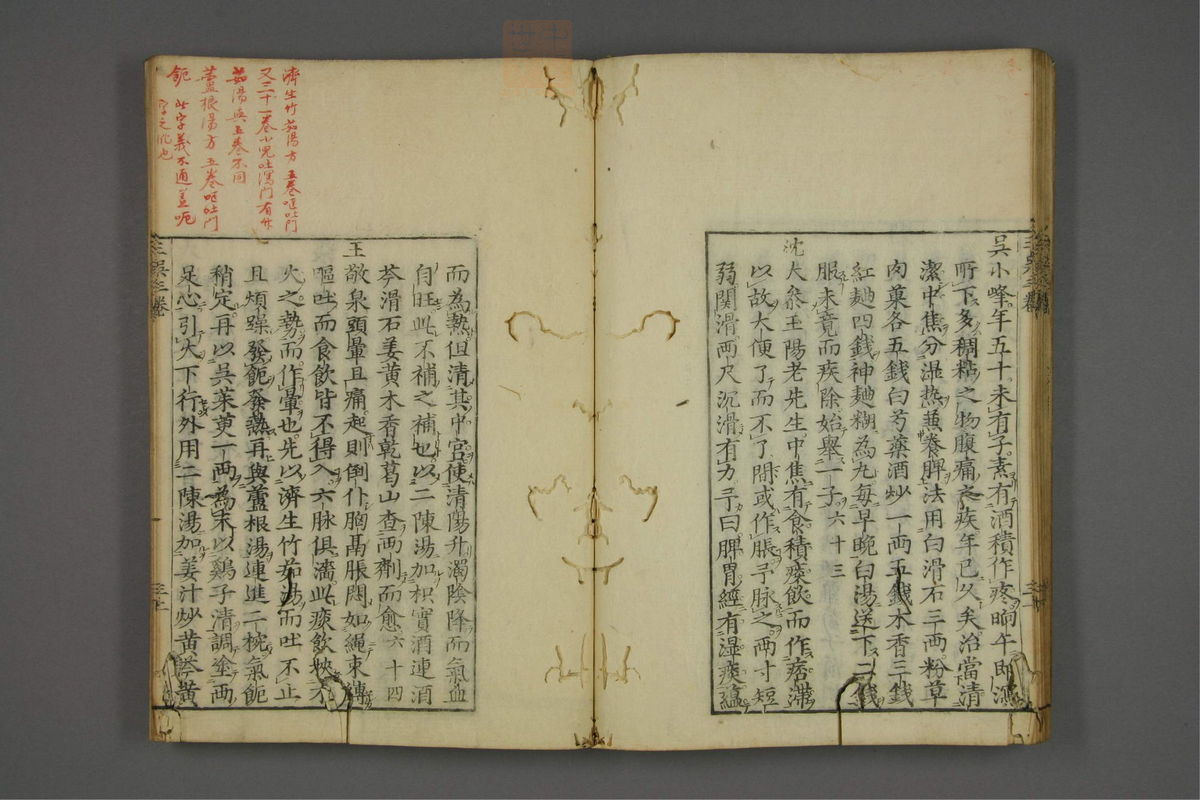 吳小峰年五十未有子素有酒積作疼晌午即瀉
所下多稠粘之物腹痛亥疾年已久矣治當清
潔中焦分湿热兼養脾法用白滑石三兩粉草
肉菓各五錢白芍藥酒炒一兩五錢木香三錢
紅麯四錢神麯糊為丸每早晚白湯送下二錢
服未竟而疾除始舉一子六十三
沈大參玉陽老先生中焦有食積痰飲而作痞滯
以故大便了而不了間或作脹予脉之兩寸短
弱関滑兩尺沉滑有力予曰脾胃經有湿痰蘊
而為熱但清其中宮使清陽升濁陰降而氣血
自旺此不補之補也以二陳湯加枳實酒連酒
芩滑石姜黃木香乾葛山查兩劑而愈六十四
王敬泉頭暈且痛起則倒仆胸鬲脹闊如繩束縛
嘔吐而食飲皆不得入六脉俱濇此痰飲挾
火之勢而作暈也先以濟生竹茹湯而吐不止
且煩躁發鈪發熱再與蘆根湯連進二椀氣鈪
稍定再以吳茱萸一兩為末以鷄子清調塗兩
足心引火下行外用二陳湯加姜汁炒黃芩黃
濟生竹茹湯方 五卷嘔吐門
又三十一卷小児吐瀉門有竹
茹湯與五卷不同
蘆根湯方 五卷嘔吐門
鈪 此字義不通蓋呃
字之訛也